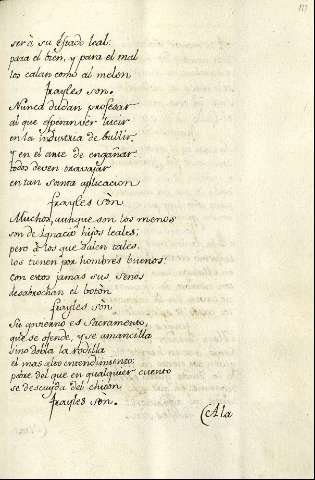 será su Estado leal:
para el bien, y para el mal
los calan como al melon
frayles son.
Nunca dudan profesar
al que esperan ver lucir
en la industria de bullir,
y en el arte de engañar
todos deven travajar
en tan santa aplicacion
frayles sòn.
Muchos, aunque son los menos
son de Ignacio hijos leales;
pero de los que salen tales.
los tienen por hombres buenos:
con estos jamas sus senos
desabrochan el botòn
frayles sòn.
Su govierno es Sacramento,
que se ofende, y se amancilla
sino dobla la rodilla
el mas alto entendimiento:
pobre del que en qualquier cuento
se descuyda del chitòn
frayles sòn.
A la